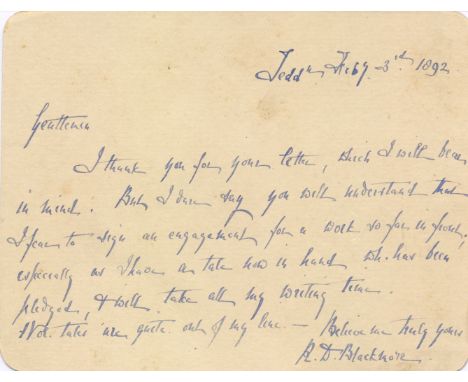 Teddn Feby 3rd 1892
Gentlemen
I thank you for your letter, which I will bear
in mind. But I dare say you will understand that
I fear to sign an engagement for a work so far in front,
especially as I have a tale now in hand wh. has been
pledged, & will take all my writing time.
Vol. tales are quite out of my line. — Believe me truly yours
R. D. Blackmore